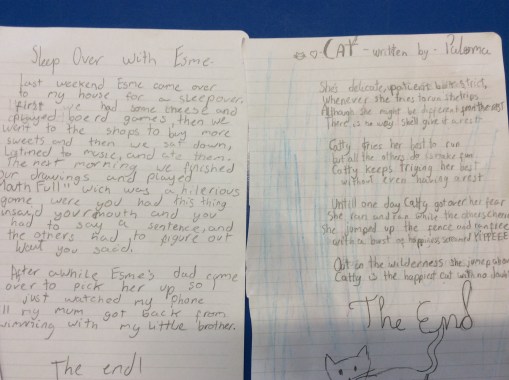 Sleep Over with Esme.
Last weekend Esme came over
to my house for a sleepover.
First we had some cheese and
played board games, then we
went to the shops to buy more
sweets and then we sat down,
listined to music, and ate them.
The next morning we finished
our drawings and played
Math Full" wich was a hilerious
game were you had this thing
insaid your mouth and you
had to say a sentence, and
the others had to figure out
waht you said.
After awhile Esme's dad came
over to pick her up so I
just watched my phone
ll my mum got back from
wimming with my little brother.
The end!
CAT - written by - Paloma
She's delicate, but strict,
Whenever she tries to run she trips
Although she might be different
There is no way she'll give it a rest
Catty tries her best to run
but all the others do is make fun
Catty keeps trying her best
without even having a rest
Untill one day Catty got over her fear
She ran and ran while the others
She jumped up the fence and ran
with a burst of happiness
Out on the wilderness she jumps
Catty is the happiest cat with no doubt
The End